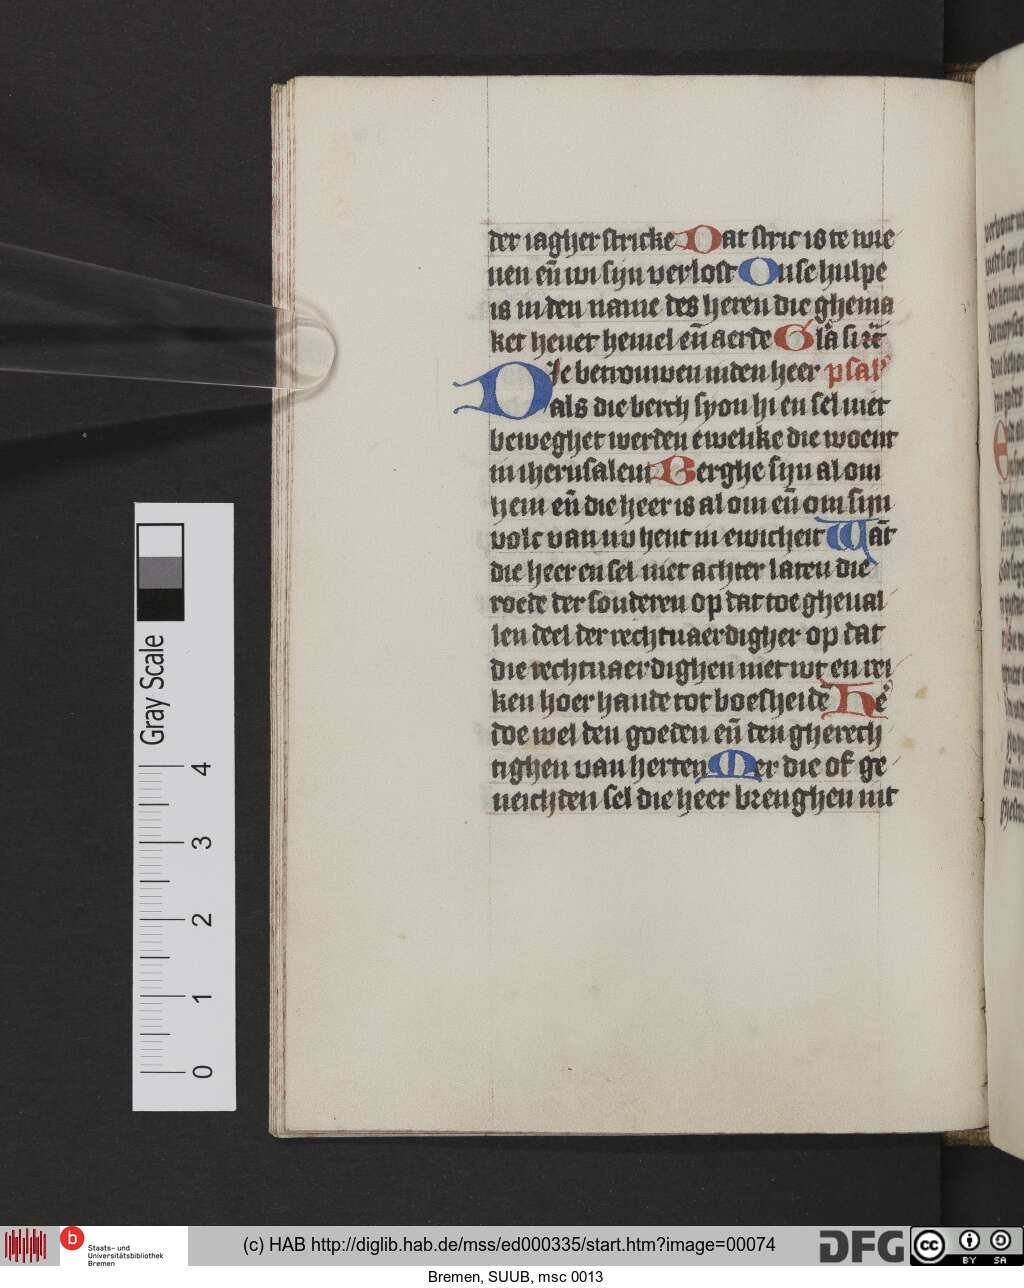 der iagher stricke Dat stric is te wre
uen en̄ wi sijn verlost Onse hulpe
is in den name des heren die ghema
ket heuet hemel en̄ aerde Gla si
DIe betrouwen inden heer psal
als die berch syon hi en sel niet
beweghet werden ewelike die woent
in iherusalem Berghe sijn al om
hem en̄ die heer is al om en̄ om sijn
volc van nv hent in ewicheit Wāt
die heer en sel niet achter laten die
roede der sonderen op dat toe gheual
len deel der rechtuaerdigher op dat
die rechtuaerdighen niet wt en rei
ken hoer hande tot boesheide He
doe wel den goeden en̄ den gherech
tighen van herten Mer die of ge
neichden sel die heer brenghen mit
Gray Scale
4
3
2
1
0
Staats- und
Universitätsbibliothek
Bremen
(c) HAB http://diglib.hab.de/mss/ed000335/start.htm?image=00074
DFG
cc BY SA
Bremen, SUUB, msc 0013